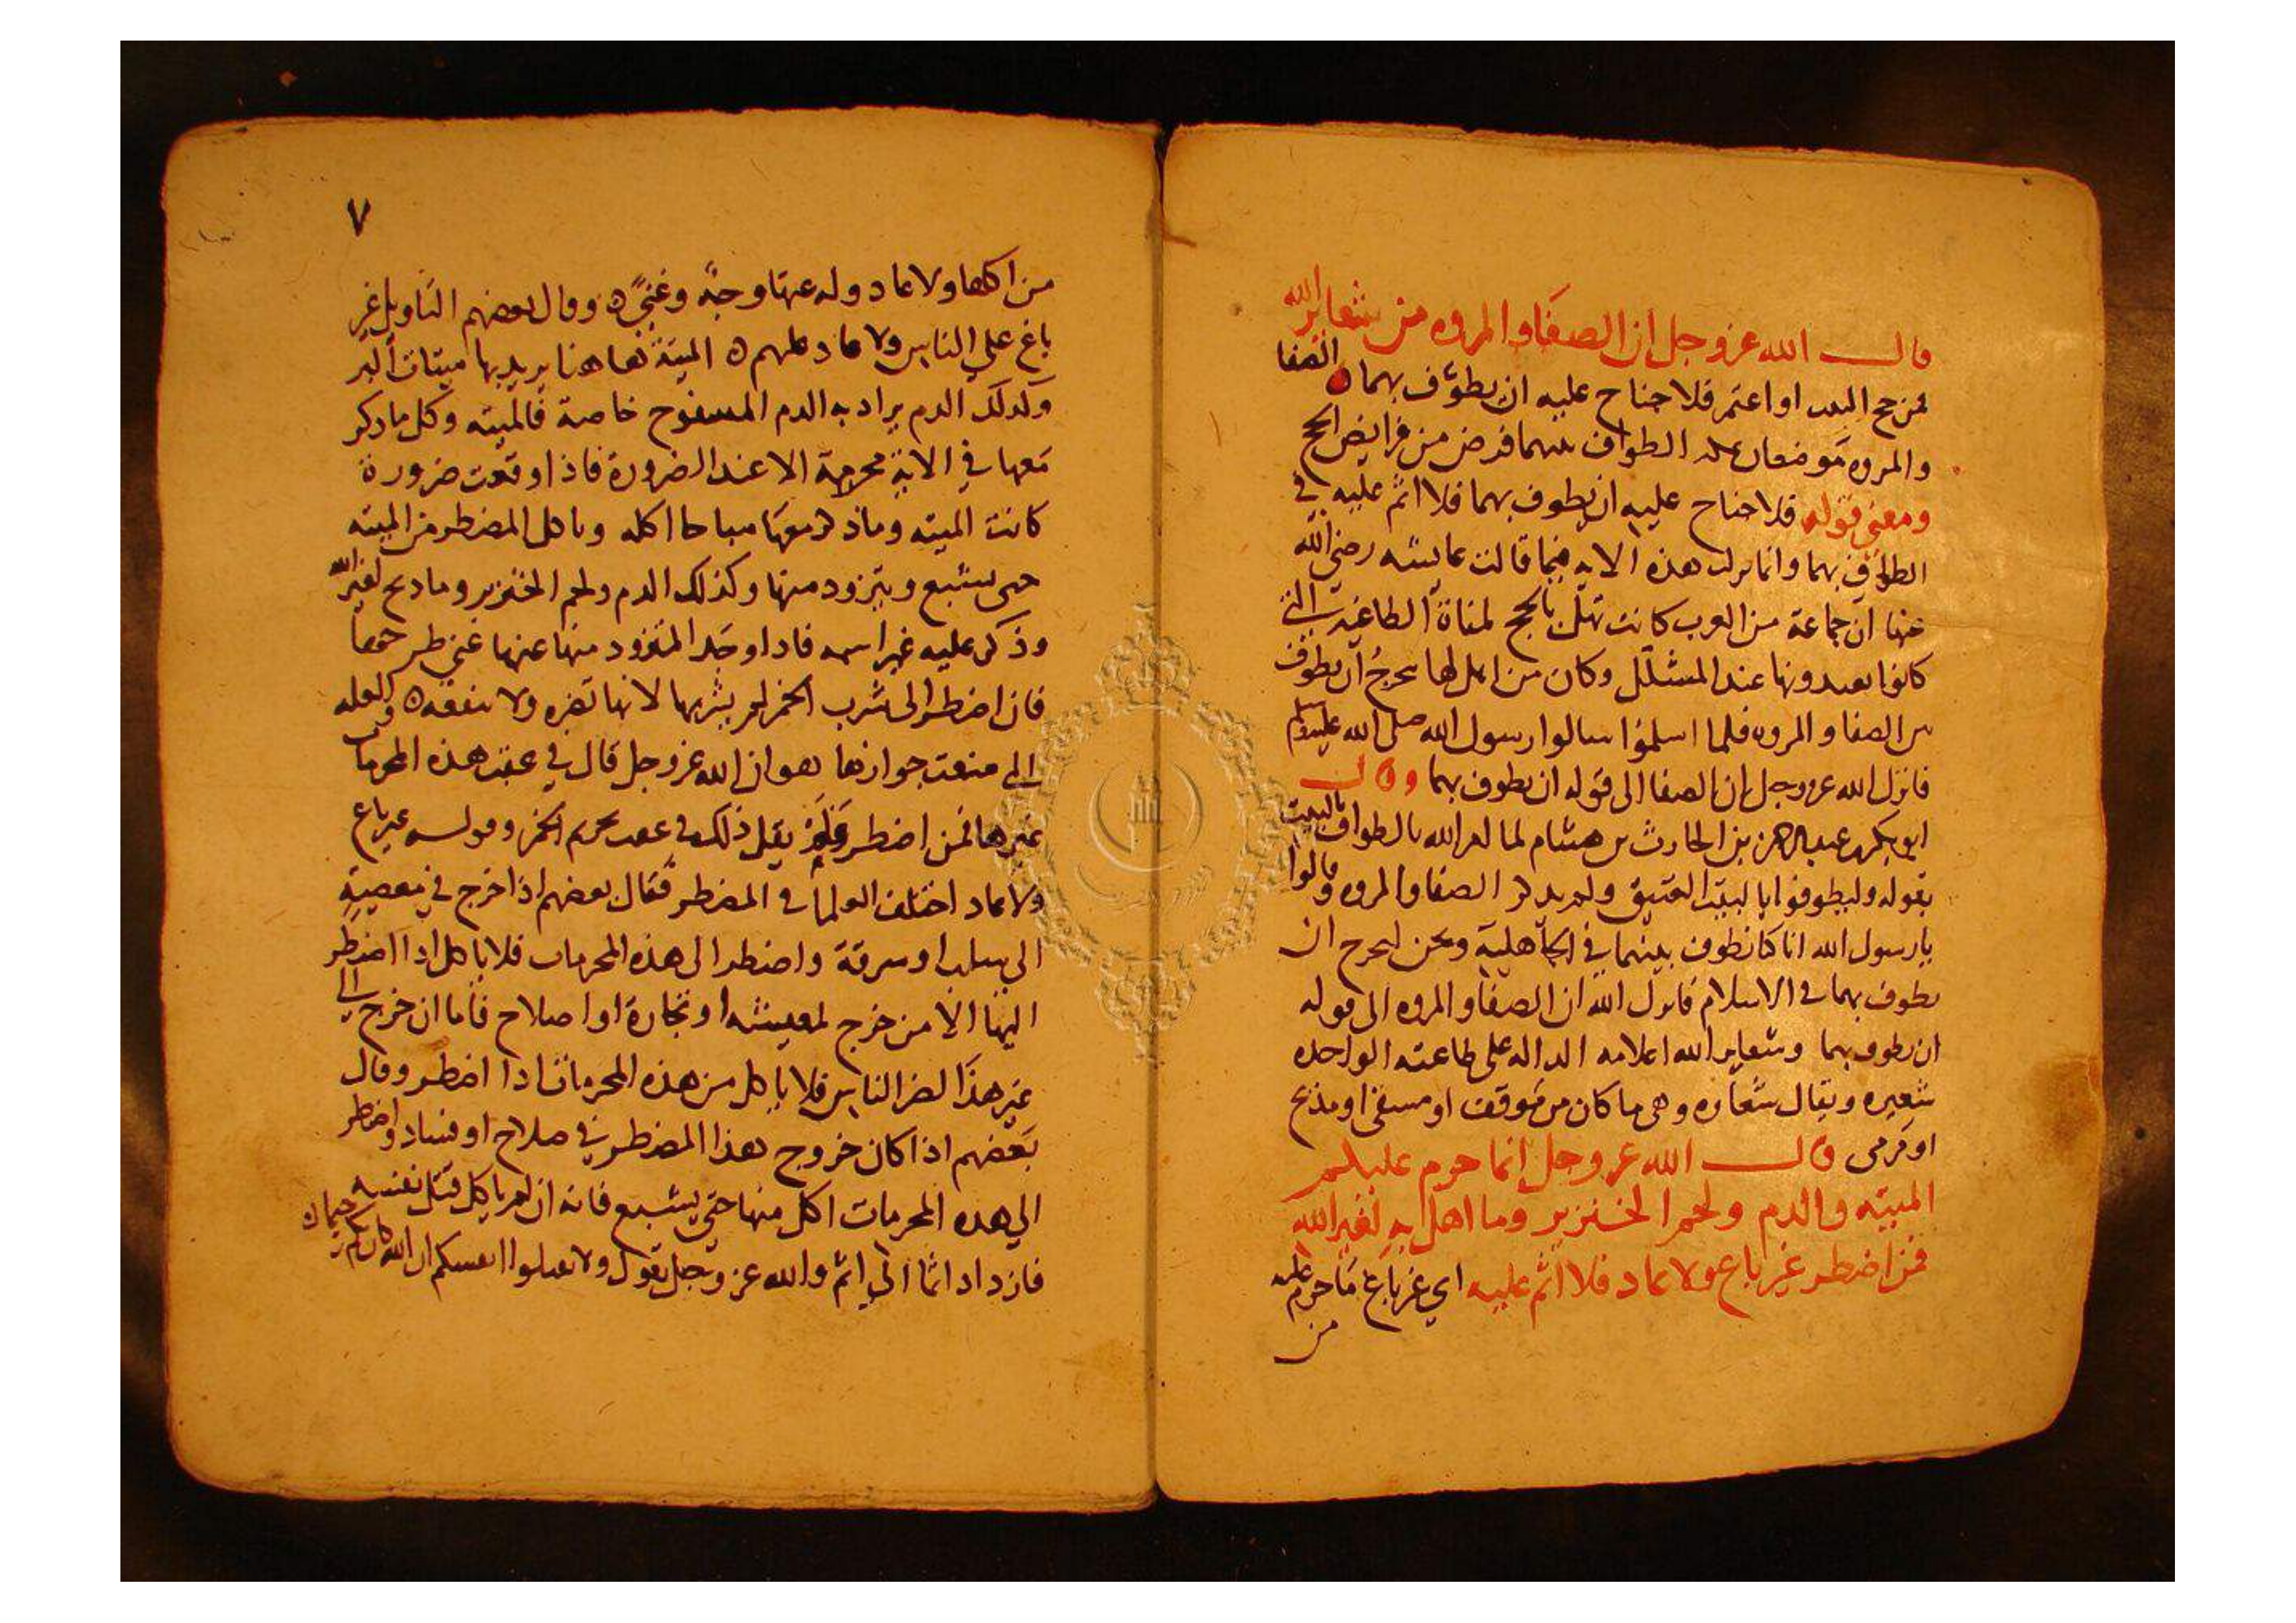 قال الله عز وجل ان الصفا والمروه من شعاير الله
فمن حج البيت او اعتمر فلا جناح عليه ان يطوف بهما ه الصفا
والمروه موضعان بمكه الطواف بينهما فرض من فرايض الحج
ومعنى قوله فلا جناح عليه ان يطوف بهما فلا اثم عليه في
الطواف بهما وانما نزلت هذه الايه فيما قالت عايشه رضي الله
عنها ان جماعة من العرب كانت تهل بالحج لمناة الطاغية التي
كانوا يعبدونها عند المشلل وكان من اهل لها يحرج ان يطوف
بين الصفا والمروه فلما اسلموا سالوا رسول الله صلى الله عليه وسلم
فانزل الله عز وجل ان الصفا الى قوله ان يطوف بهما وقال
ابو بكر بن عبد الرحمن بن الحارث بن هشام لما امر الله بالطواف بالبيت
بقوله وليطوفوا بالبيت العتيق ولم يذكر الصفا والمروه قالوا
يا رسول الله انا كنا نطوف بينهما في الجاهلية ونحن نحرج ان
نطوف بهما في الاسلام فانزل الله ان الصفا والمروه الى قوله
ان يطوف بهما وشعاير الله اعلامه الداله على طاعته الواحده
شعيره ويقال شعاره وهي ما كان من موقف او مسعى او مذبح
او مرمى قال الله عز وجل انما حرم عليكم
الميته والدم ولحم الخنزير وما اهل به لغير الله
فمن اضطر غير باغ ولا عاد فلا اثم عليه اي غير باغ ما حرم عليه
من
٧
من اكلها ولا عاد وله عنها وجه وغنى ه وقال بعضهم التاويل غير
باغ على الناس ولا عاد عليهم ه الميتة هاهنا يريد بها ميتات البر
وكذلك الدم يراد به الدم المسفوح خاصة فالميته وكل ما ذكر
معها في الاية محرمة الا عند الضرورة فاذا وقعت ضرورة
كانت الميته وما ذكر معها مباحا اكله وياكل المضطر من الميته
حتى يشبع ويتزود منها وكذلك الدم ولحم الخنزير وما ذبح لغير الله
وذكر عليه غير اسمه فاذا وجد المتزود منها عنها غنى طرحها
فان اضطر الى شرب الخمر لم يشربها لانها تضره ولا تنفعه ه والعله
التي منعت جوازها هو ان الله عز وجل قال في عقب هذه المحرمات
غيرها فمن اضطر ولم يقل ذلك في عقب تحريم الخمر وقوله غير باغ
ولا عاد اختلف العلما في المضطر فقال بعضهم اذا خرج في معصية
الى سلب او سرقة واضطر الى هذه المحرمات فلا ياكل اذا اضطر
اليها الا من خرج لمعيشه او تجارة او اصلاح فاما ان خرج الى
غير هذا لضر الناس فلا ياكل من هذه المحرمات اذا اضطر وقال
بعضهم اذا كان خروج هذا المضطر في صلاح او فساد واضطر
الى هذه المحرمات اكل منها حتى يشبع فانه ان لم ياكل قتل نفسه
فازداد اثما الى اثم والله عز وجل يقول ولا تقتلوا انفسكم ان الله كان بكم رحيما ه